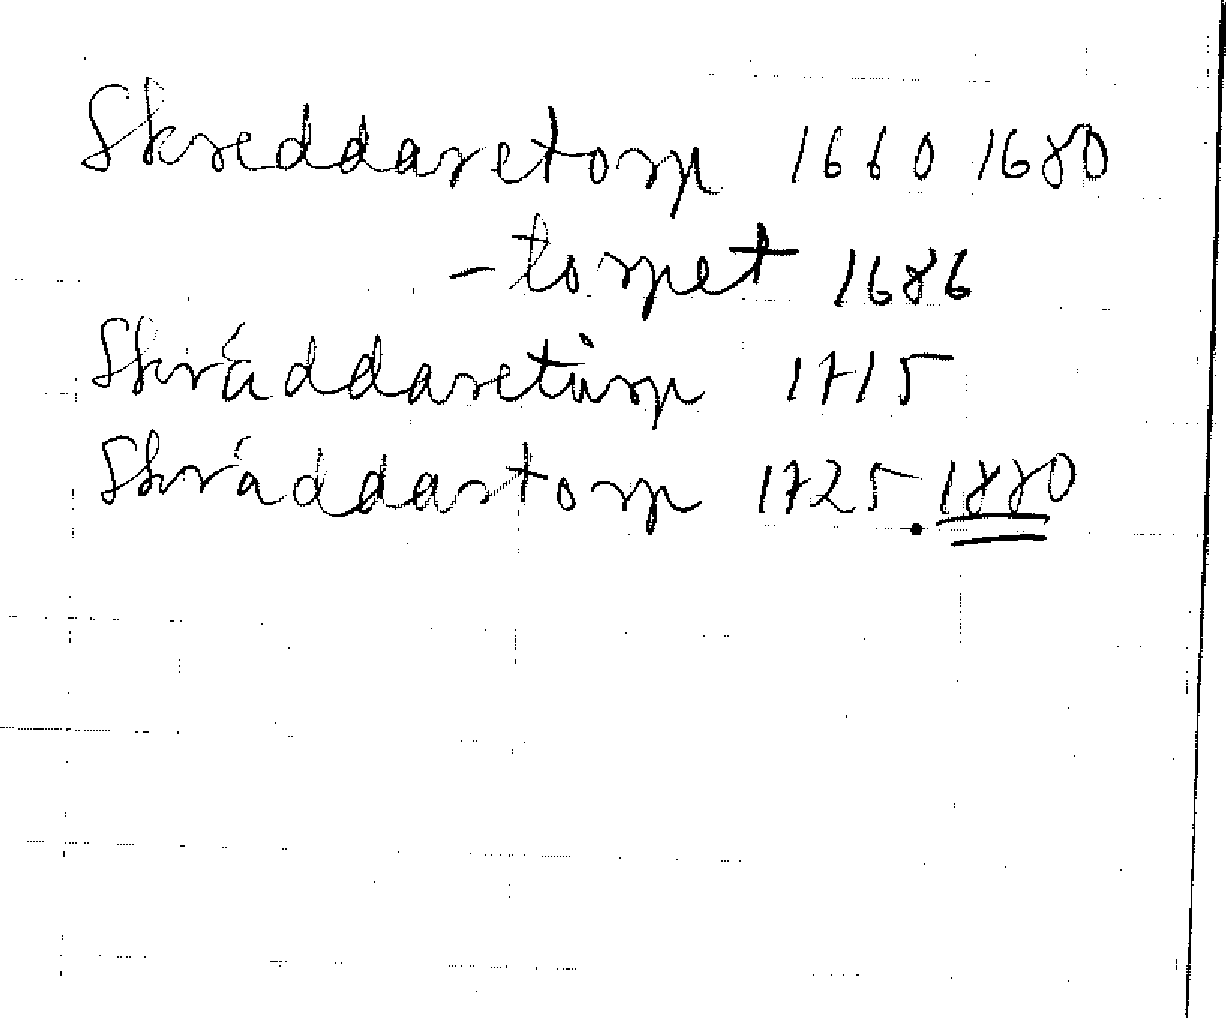 Skreddaretorp 1660 1680
-torpet 1686
Skräddaretårp 1715
Skräddartorp 1725. 1880